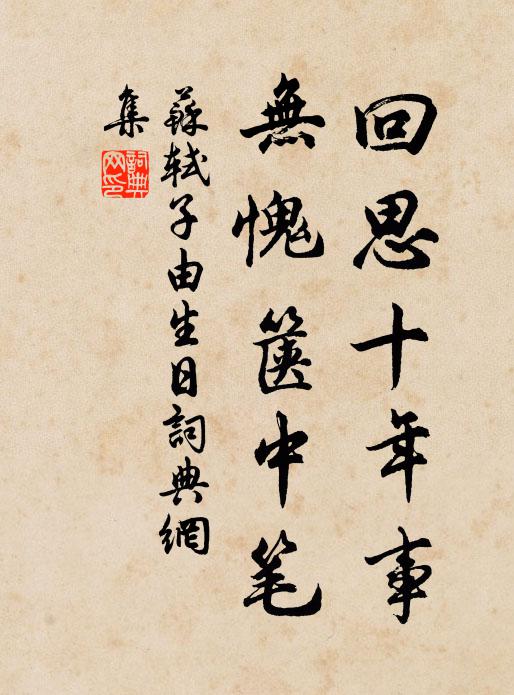 回思十年事
無愧篋中笔
蘇軾子由生日詞典網
集
詞典网印